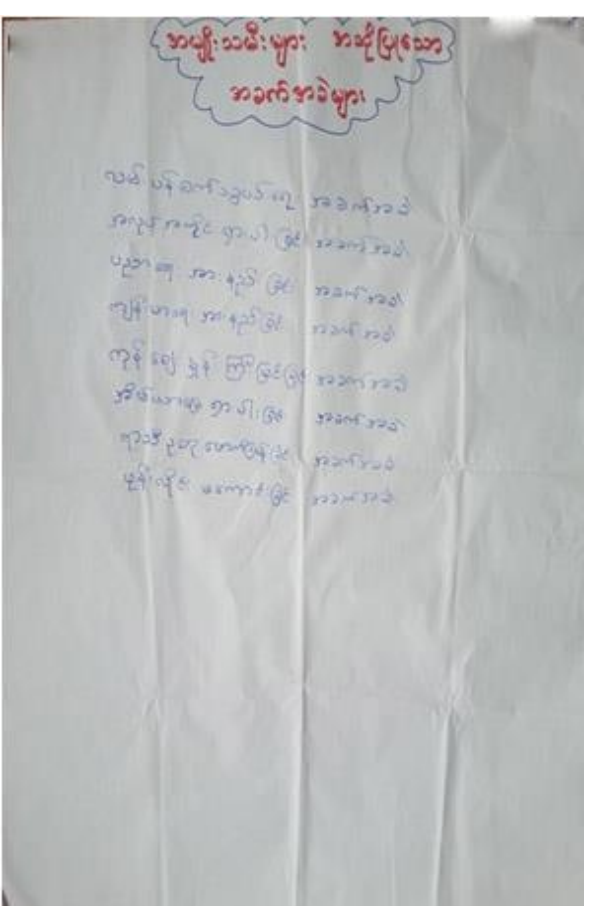 အမျိုးသမီးများ အဆိုပြုသော
အခက်အခဲများ
လမ်းပန်းဆက်သွယ်ရေး အခက်အခဲ
အလုပ်အကိုင် ရှားပါးခြင်း အခက်အခဲ
ပညာရေး အားနည်းခြင်း အခက်အခဲ
ကျန်းမာရေး အားနည်းခြင်း အခက်အခဲ
ကုန်ဈေးနှုန်း ကြီးမြင့်ခြင်း အခက်အခဲ
အိမ်သာ ရှားပါးခြင်း အခက်အခဲ
ရာသီဥတု ဖောက်ပြန်ခြင်း အခက်အခဲ
ဖုန်းလိုင်း မကောင်းခြင်း အခက်အခဲ